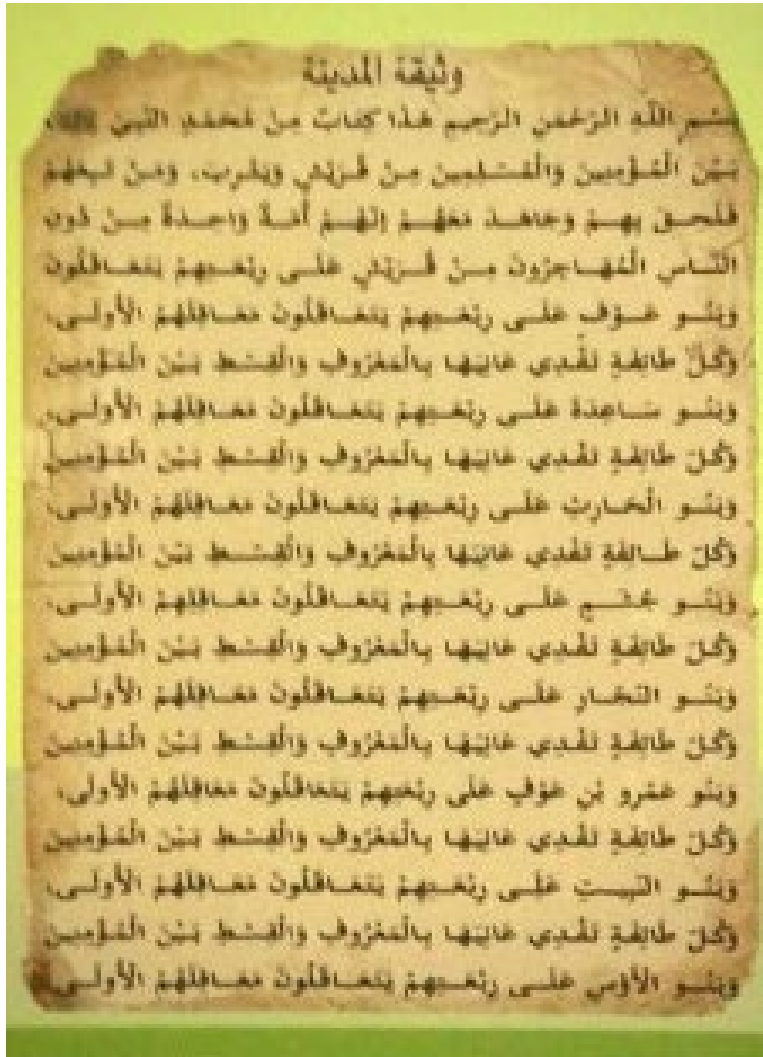 وثيقة المدينة
بسم اللهِ الرَّحْمَنِ الرَّحِيمِ هَذَا كِتَابٌ مِنْ مُحَمَّدٍ النَّبِيِّ
بَيْنَ الْمُؤْمِنِينَ وَالْمُسْلِمِينَ مِنْ قُرَيْشٍ وَيَثْرِبَ، وَمَنْ تَبِعَهُمْ
فَلَحِقَ بِهِمْ وَجَاهَدَ مَعَهُمْ إِنَّهُمْ أُمَّةٌ وَاحِدَةٌ مِنْ دُونِ
النَّاسِ الْمُهَاجِرُونَ مِنْ قُرَيْشٍ عَلَى رِبْعَتِهِمْ يَتَعَاقَلُونَ
وَبَنُو عَوْفٍ عَلَى رِبْعَتِهِمْ يَتَعَاقَلُونَ مَعَاقِلَهُمْ الْأُولَى،
وَكُلُّ طَائِفَةٍ تَفْدِي عَانِيَهَا بِالْمَعْرُوفِ وَالْقِسْطِ بَيْنَ الْمُؤْمِنِينَ
وَبَنُو سَاعِدَةَ عَلَى رِبْعَتِهِمْ يَتَعَاقَلُونَ مَعَاقِلَهُمْ الْأُولَى،
وَكُلُّ طَائِفَةٍ تَفْدِي عَانِيَهَا بِالْمَعْرُوفِ وَالْقِسْطِ بَيْنَ الْمُؤْمِنِينَ
وَبَنُو الْحَارِثِ عَلَى رِبْعَتِهِمْ يَتَعَاقَلُونَ مَعَاقِلَهُمْ الْأُولَى،
وَكُلُّ طَائِفَةٍ تَفْدِي عَانِيَهَا بِالْمَعْرُوفِ وَالْقِسْطِ بَيْنَ الْمُؤْمِنِينَ
وَبَنُو جُشَمٍ عَلَى رِبْعَتِهِمْ يَتَعَاقَلُونَ مَعَاقِلَهُمْ الْأُولَى،
وَكُلُّ طَائِفَةٍ تَفْدِي عَانِيَهَا بِالْمَعْرُوفِ وَالْقِسْطِ بَيْنَ الْمُؤْمِنِينَ
وَبَنُو النَّجَّارِ عَلَى رِبْعَتِهِمْ يَتَعَاقَلُونَ مَعَاقِلَهُمْ الْأُولَى،
وَكُلُّ طَائِفَةٍ تَفْدِي عَانِيَهَا بِالْمَعْرُوفِ وَالْقِسْطِ بَيْنَ الْمُؤْمِنِينَ
وَبَنُو عَمْرِو بْنِ عَوْفٍ عَلَى رِبْعَتِهِمْ يَتَعَاقَلُونَ مَعَاقِلَهُمْ الْأُولَى،
وَكُلُّ طَائِفَةٍ تَفْدِي عَانِيَهَا بِالْمَعْرُوفِ وَالْقِسْطِ بَيْنَ الْمُؤْمِنِينَ
وَبَنُو النَّبِيتِ عَلَى رِبْعَتِهِمْ يَتَعَاقَلُونَ مَعَاقِلَهُمْ الْأُولَى،
وَكُلُّ طَائِفَةٍ تَفْدِي عَانِيَهَا بِالْمَعْرُوفِ وَالْقِسْطِ بَيْنَ الْمُؤْمِنِينَ
وَبَنُو الْأَوْسِ عَلَى رِبْعَتِهِمْ يَتَعَاقَلُونَ مَعَاقِلَهُمْ الْأُولَى،